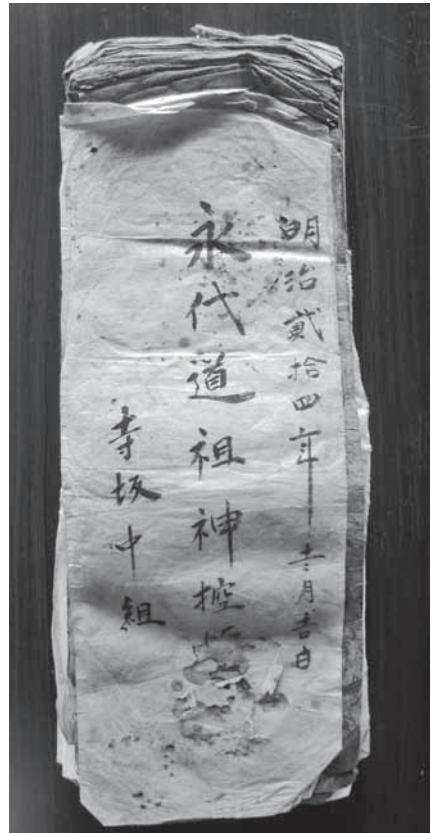 明治貳拾四年十二月吉日
永代道祖神控
寺坂中組